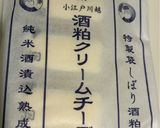 小江戸川越
特製袋しぼり酒粕
酒粕クリームチー
純米酒漬込熟成